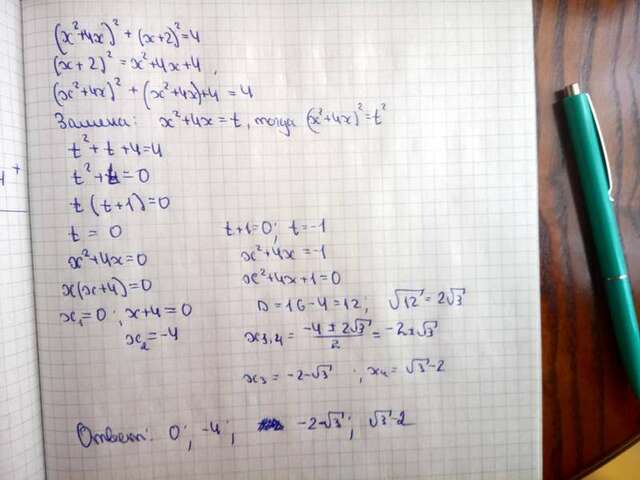 (x²+4x)² + (x+2)² = 4
(x+2)² = x²+4x+4,
(x²+4x)² + (x²+4x)+4 = 4
Замена: x²+4x = t, тогда (x²+4x)² = t²
t² + t + 4 = 4
t² + t = 0
t (t+1) = 0
t = 0
x²+4x = 0
x(x+4) = 0
x₁ = 0; x+4 = 0
x₂ = -4
t+1 = 0; t = -1
x²+4x = -1
x²+4x+1 = 0
D = 16-4 = 12; √12 = 2√3
x₃,₄ = (-4 ± 2√3)/2 = -2±√3
x₃ = -2-√3 ; x₄ = √3-2
Ответ: 0; -4; -2-√3; √3-2